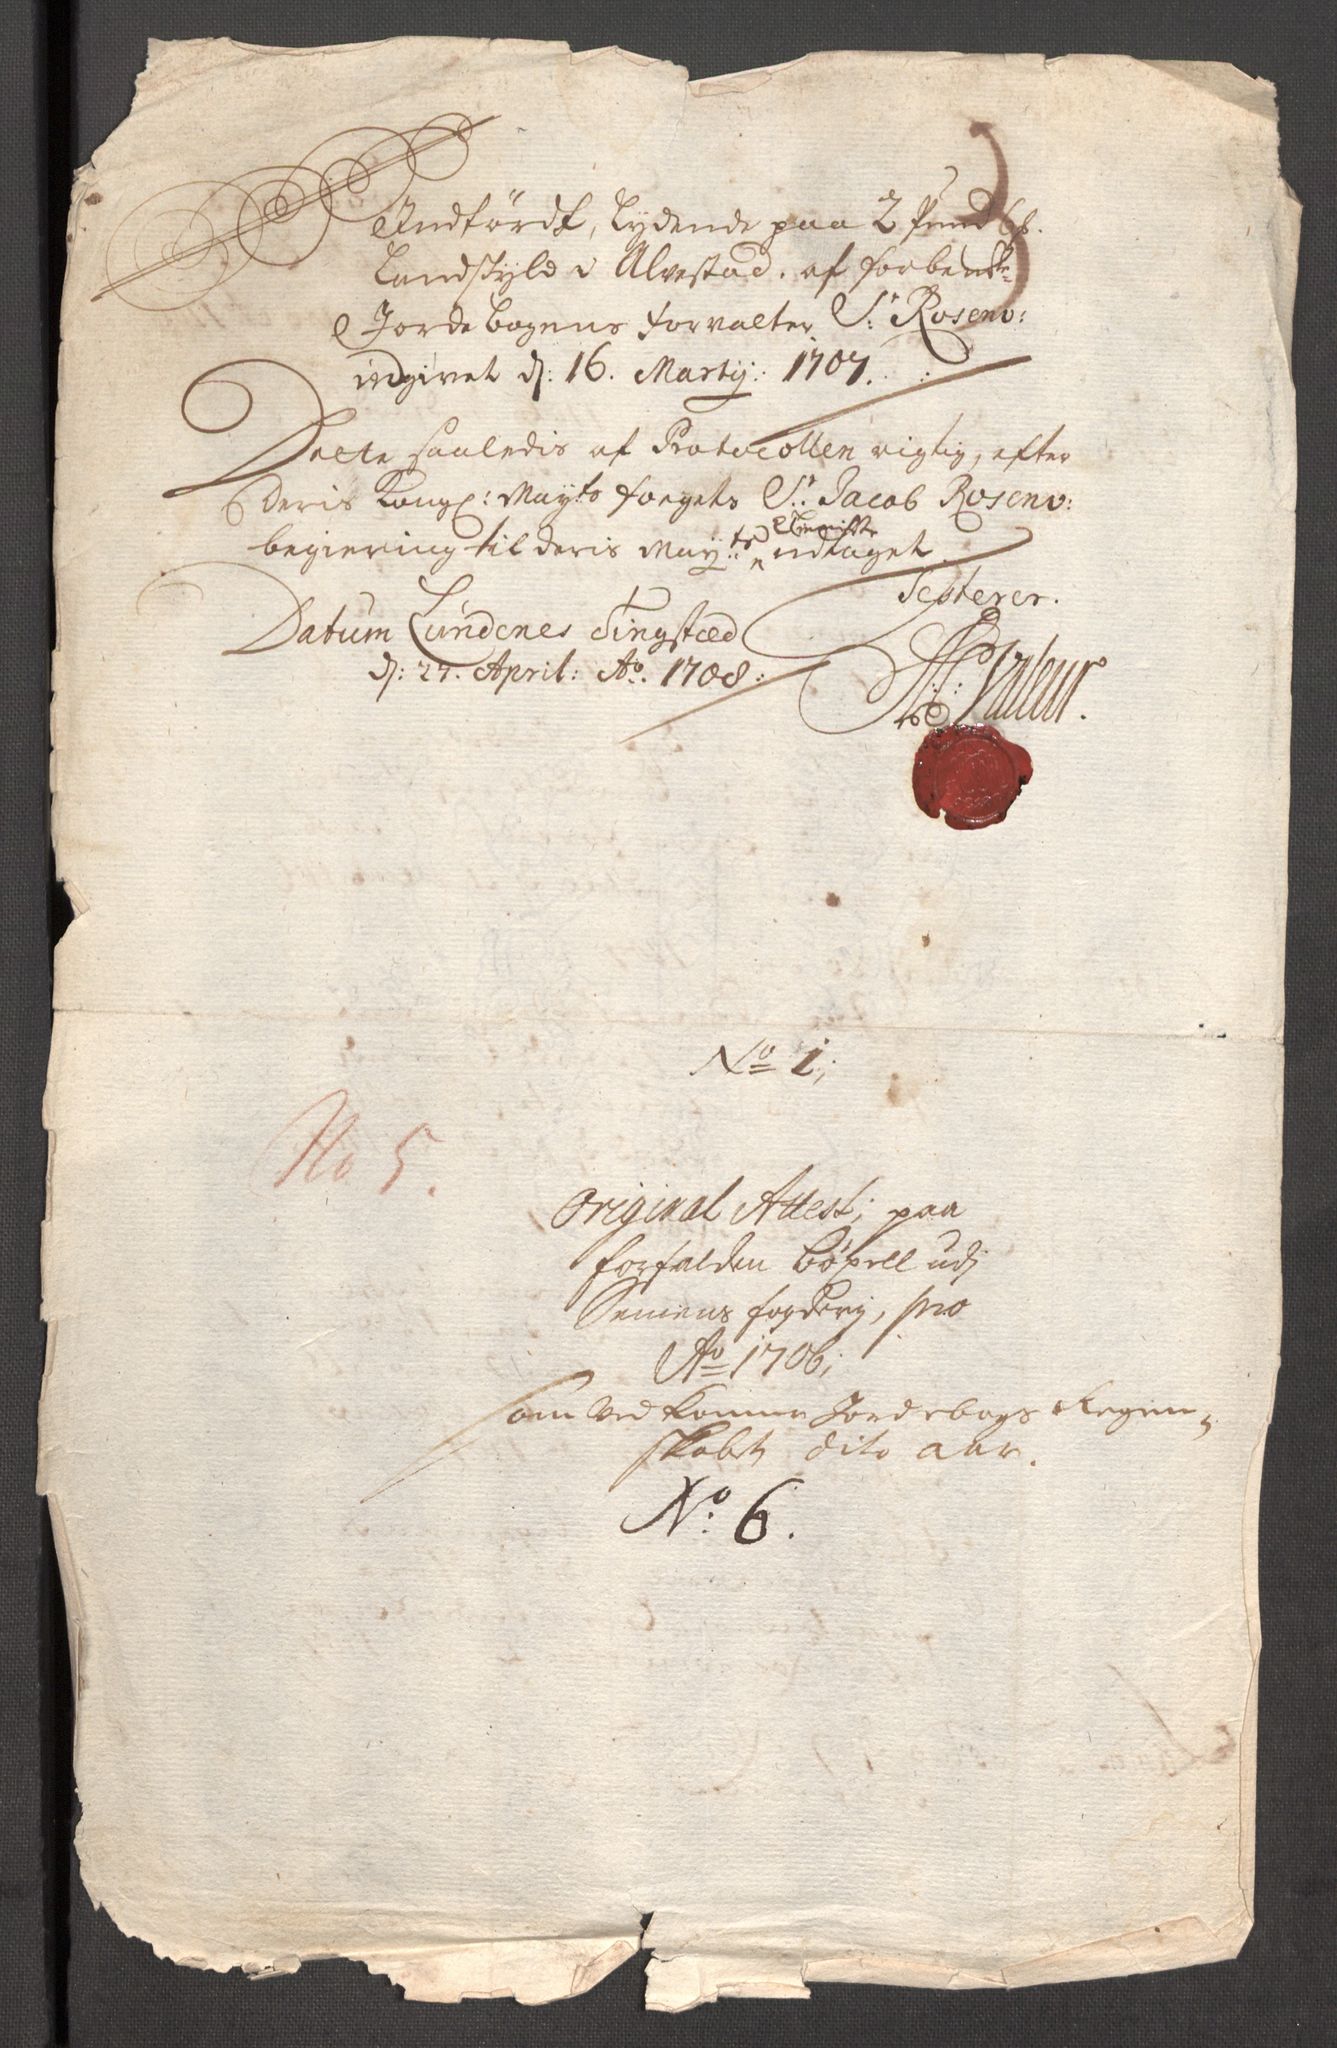 Andfördt, Lydende paa 2 Pund
Landskyld i Alvestad. af forbem.te
Jordebogens forvalter S.r Rosenv:
udgivet d: 16. Martij: 1707.
Dette saaledis af Protocollen rigtig, efter
Deris Kongl: Mayts fogets S.r Jacob Rosenv:
begiering til deris May:ts udtaget
Testerer.
Datum Lundenes Tingstæd
d: 27. April: Ao. 1708:
No 1;
No 5.
Original Attest; paa
forfalden böxell udj
Seniens fogderj, pro
Ao 1706;
som Ved kommer Jordebogs Regen-
skabet dito aar.
No: 6.